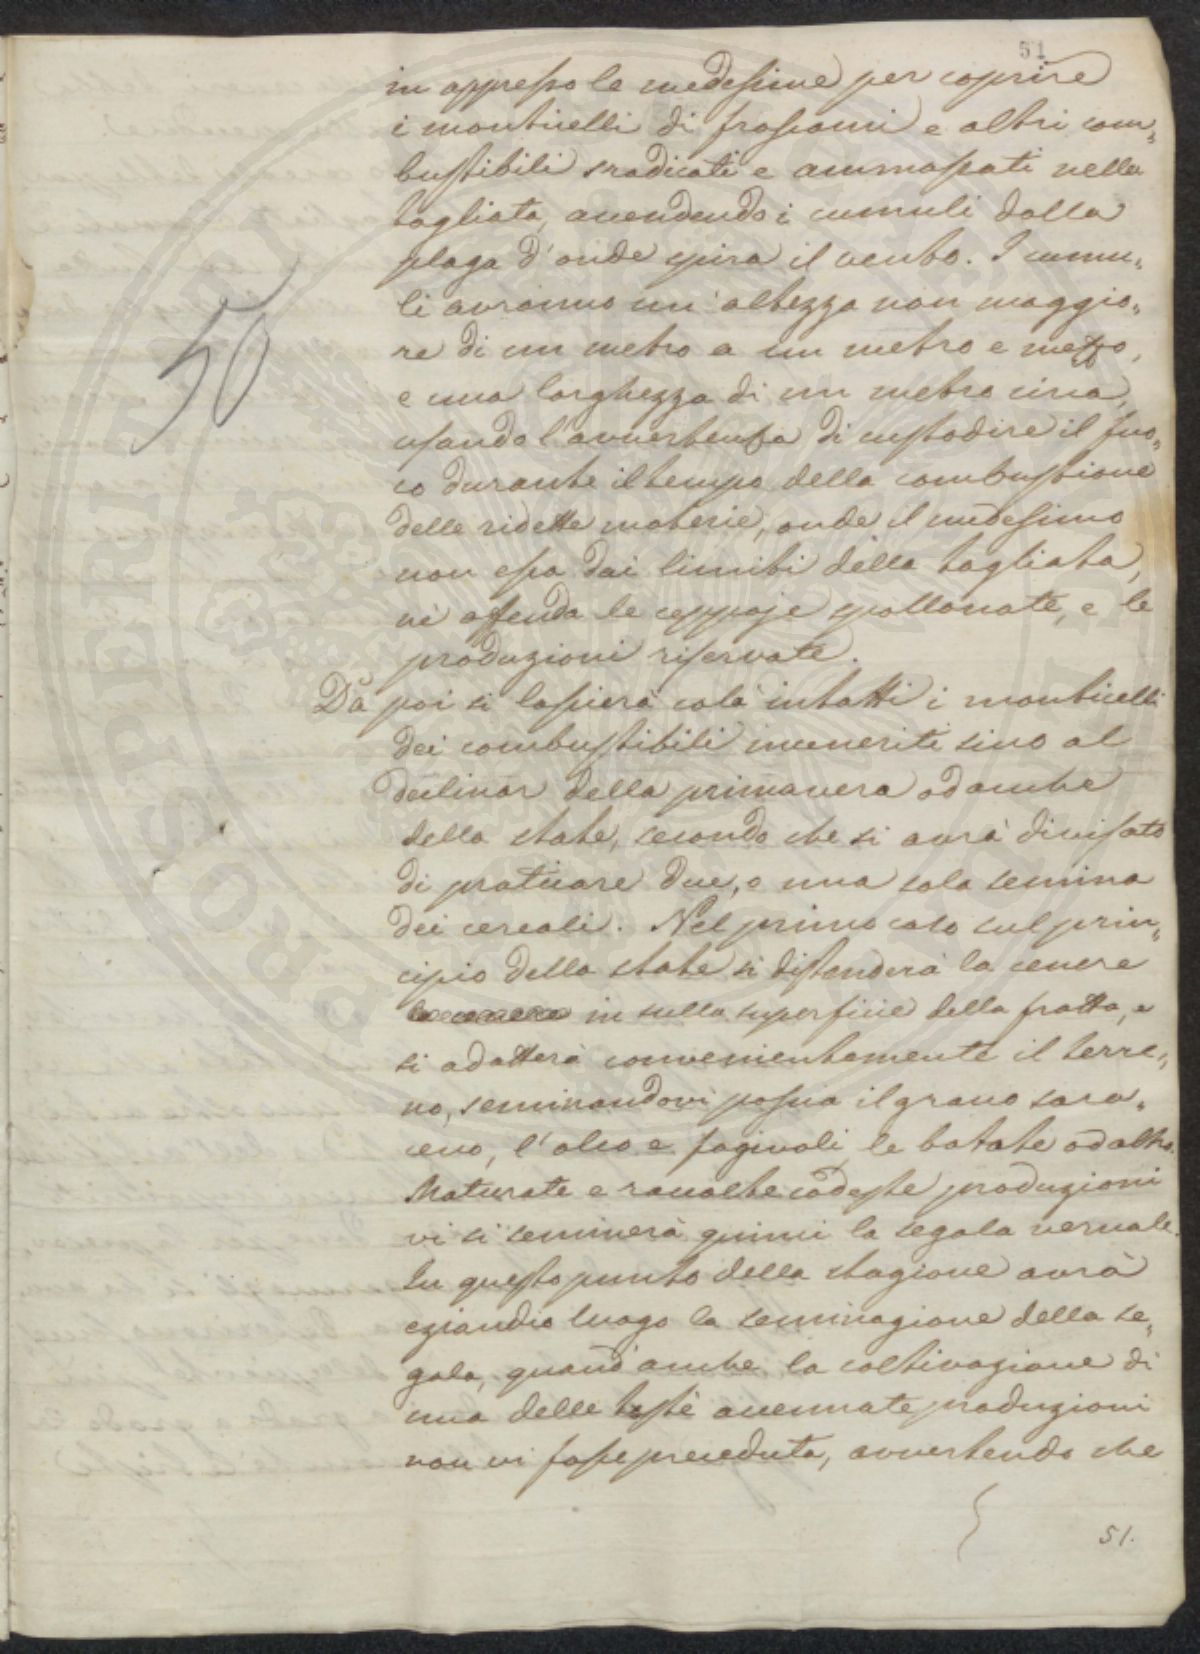 51
in appresso le medesime per coprire
i monticelli di frascami e altri com„
bustibili sradicati e ammassati nella
tagliata, accendendo i cumuli dalla
plaga d'onde spira il vento. I cumu„
li avranno un'altezza non maggio„
re di un metro a un metro e mezzo,
e una larghezza di un metro circa,
usando l'avvertenza di custodire il fuo„
co durante il tempo della combustione
delle ridette materie, onde il medesimo
non esca dai limiti della tagliata,
nè offenda le ceppaje spollonate, e le
produzioni riservate.
Da poi si lascierà colà intatti i monticelli
dei combustibili inceneriti sino al
declinar della primavera od anche
della state, secondo che si avrà divisato
di praticare due, o una sola semina
dei cereali. Nel primo caso sul prin„
cipio della state si distenderà la cenere
in sulla superficie della fratta, e
si adatterà convenientemente il terre„
no, seminandovi poscia il grano sara„
ceno, l'olco e fagiuoli, le batate od altro.
Maturate e raccolte codeste produzioni
vi si seminerà quinci la segala vernale.
In questo punto della stagione avrà
eziandio luogo la seminagione della se„
gala, quand'anche la coltivazione di
una delle testè accennate produzioni
non vi fosse preceduta, avvertendo che
50
51.
PROSPERITATI PUBLICAE